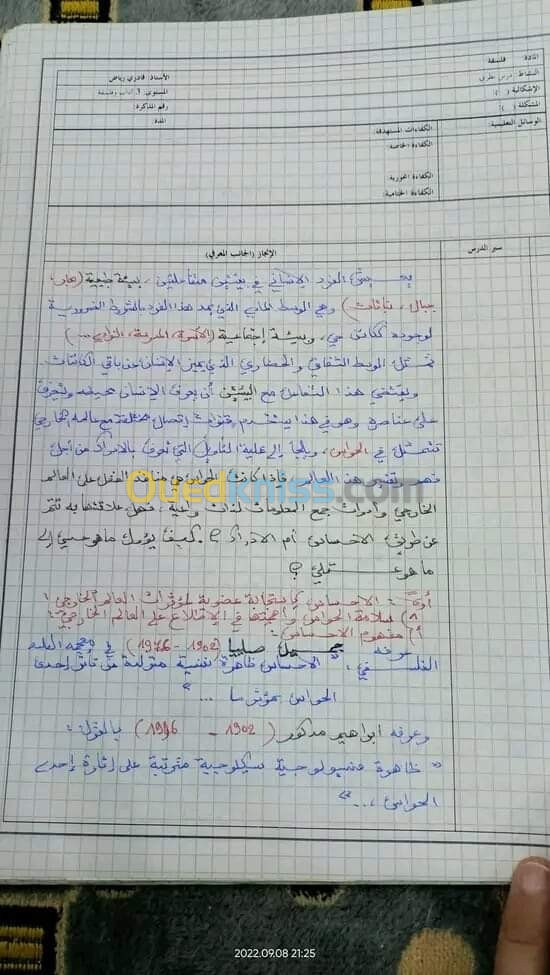 المادة: فلسفة
النشاط: درس نظري
الأستاذ: قادري رياض
الإشكالية ( ):
المستوى: 3 آداب وفلسفة
المشكلة ( ):
رقم المذكرة:
المدة:
الوسائل التعليمية:
الكفاءات المستهدفة:
الكفاءة الخاصة:
الكفاءة المحورية:
الكفاءة الختامية:
سير الدرس
الإنجاز (الجانب المعرفي)
الفرد الإنساني في بيئتين متفاعلتين، بيئة طبيعية (هواء،
جبال، نباتات) وهي الوسط المادي الذي يمد هذا الفرد بالشروط الضرورية
لوجوده ككائن حي، وبيئة اجتماعية (الأسرة، المدرسة، النوادي ...)
تمثل الوسط الثقافي والحضاري الذي يميز الإنسان عن باقي الكائنات.
ويقتضي هذا التعامل مع البيئتين أن يعرف الإنسان محيطه ويتعرف
على عناصره وهو في هذا يستخدم قنوات اتصال مختلفة مع عالمه الخارجي
تتمثل في الحواس، ويلجأ إلى عملية التأويل التي تعرف بالإدراك من أجل
فهم وتفسير هذا العالم. فإذا كانت الحواس هي العقل على العالم
الخارجي وأدوات جمع المعلومات لذات واعية، فهل علاقتنا به تتم
عن طريق الاحساس أم الادراك؟ كيف يؤول ما هو حسي إلى
ما هو عقلي؟
أولا: الاحساس كاستجابة عضوية لمؤثرات العالم الخارجي:
1/ سلامة الحواس وأهميتها في الاطلاع على العالم الخارجي:
أ/ مفهوم الاحساس:
عرفه جميل صليبا (1902 - 1976) في معجمه
الفلسفي: "الاحساس ظاهرة نفسية متولدة من تأثر إحدى
الحواس بمؤثر ما ..."
وعرفه ابراهيم مدكور (1902 - 1996) بالقول:
"ظاهرة فسيولوجية سيكلوجية مترتبة على إثارة إحدى
الحواس ..."
Ouedkniss.com
2022.09.08 21:25